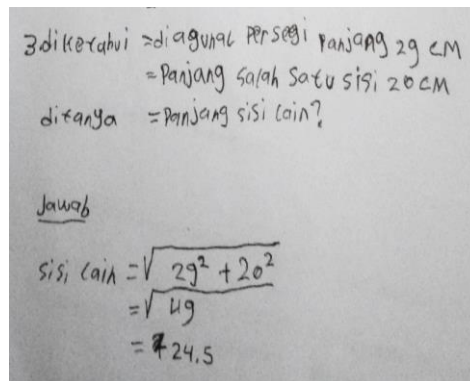 3 diketahui = diagunal persegi panjang 29 CM
= Panjang salah satu sisi 20 CM
ditanya = Panjang sisi lain?
Jawab
sisi lain = √29² + 20²
= √49
= 24,5